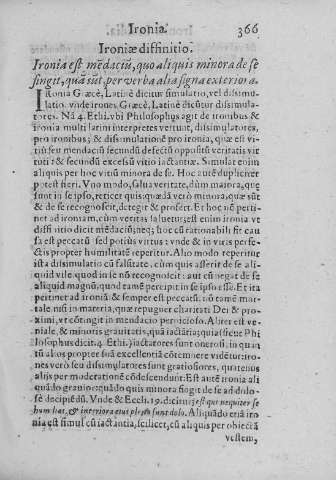 Ironia. 366
Ironiæ diffinitio.
Ironia est mẽdaciũ, quo aliquis minora de se
fingit, quã sũt, per verba alia signa exteriora.
IRonia Græcè, Latinè dicitur simulatio, vel dissimu
latio. vnde irones Græcè, Latinè dicũtur dissimula-
tores. Nã 4. Ethi. vbi Philosophus agit de ironibus &
ironia multi latini interpretes vertunt, dissimulatores,
pro ironibus; & dissimulationẽ pro ironia, quæ est vi-
tiũ seu mendaciũ secundũ defectũ oppositũ veritatis vir
tuti: & secundũ excessũ vitio iactantiæ. Simulat enim
aliquis per hoc vitiũ minora de se. Hoc autẽ dupliciter
potest fieri. Vno modo, salua veritate, dũm maiora, quę
sunt in se ipso, reticet quis: quædã verò minora, quæ sũt
& de se recognoscit, detegit & profert. Et hoc nõ perti-
net ad ironiam, cũm veritas saluetur; est enim ironia vt
diffinitio dicit mẽdaciũ; neq; hoc cũ rationabili fit cau
sa est peccatũ sed potiùs virtus: vnde & in viris perfe-
ctis propter humilitatẽ reperitur. Alio modo reperitur
ista dissimulatio cũ falsitate. cùm quis asserit de se ali-
quid vile. quod in se nõ recognoscit: aut cũ negat de se
aliquid magnũ, quod tamẽ percipit in se ipso esse. Et ita
pertinet ad ironiã & semper est peccatũ. nõ tamẽ mor-
tale nisi in materia, quæ repugnet charitati Dei & pro-
ximi, vt cõtingit in mendacio pernicioso. Aliter est ve-
niale, & minoris grauitatis, quã iactãtia; quia sicut Phi
losophus dicit 4. Ethi. iactatores sunt onerosi. in quan
tũ alios propter suã excellentiã cõtemnere vidẽtur: iro-
nes verò seu dissimulatores sunt gratiosiores, quatenus
alijs per moderationẽ cõdescendunt. Est autẽ ironia ali
quãdo grauior: quãdo quis minora fingit de se ad dolo-
sè decipiẽdũ. Vnde & Eccli. 19. dicitur; est qui nequiter se
humiliat, & interiora eius plena sunt dolo. Aliquãdo etiã iro
nia est simul cũ iactantia, scilicet, cũ aliquis per obiectã
vestem,